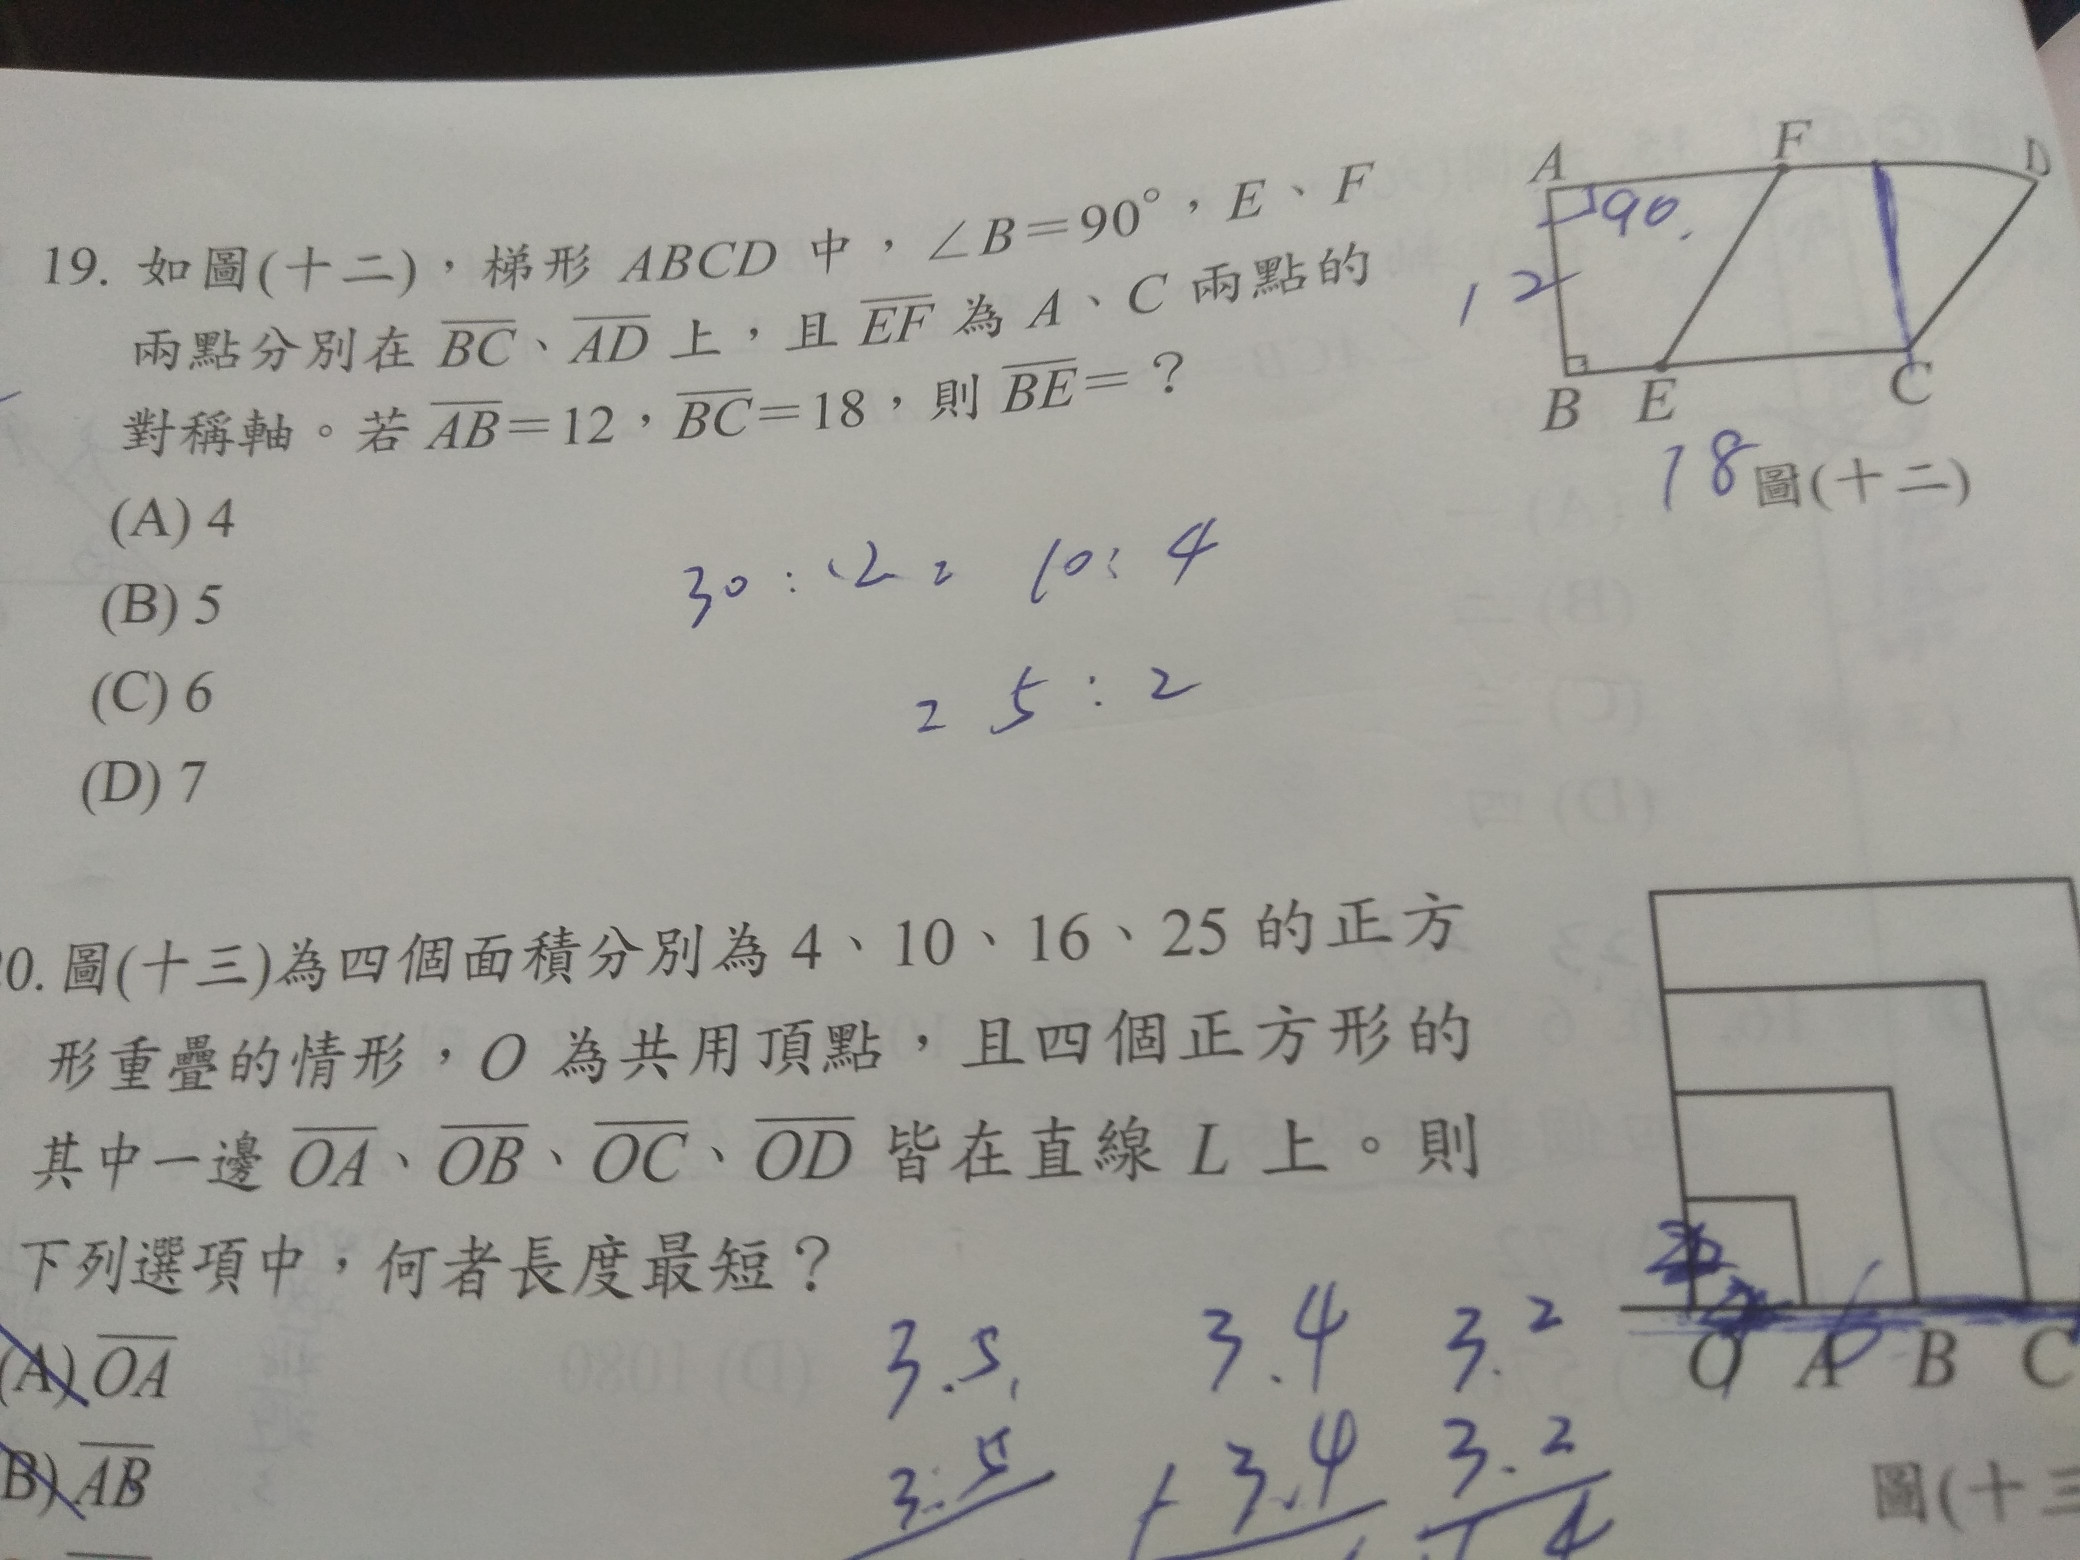 19. 如圖(十二)，梯形 ABCD 中，∠B=90°，E、F
兩點分別在 BC、AD 上，且 EF 為 A、C 兩點的
對稱軸。若 AB=12，BC=18，則 BE=？
(A) 4
(B) 5
(C) 6
(D) 7
A F D
90.
12
B E C
18
圖(十二)
30 : 12 = 10 : 4
= 5 : 2
0. 圖(十三)為四個面積分別為 4、10、16、25 的正方
形重疊的情形，O 為共用頂點，且四個正方形的
其中一邊 OA、OB、OC、OD 皆在直線 L 上。則
下列選項中，何者長度最短？
(A) OA
(B) AB
O A B C
圖(十三
3.5 3.4 3.2
3.5 3.4 3.2